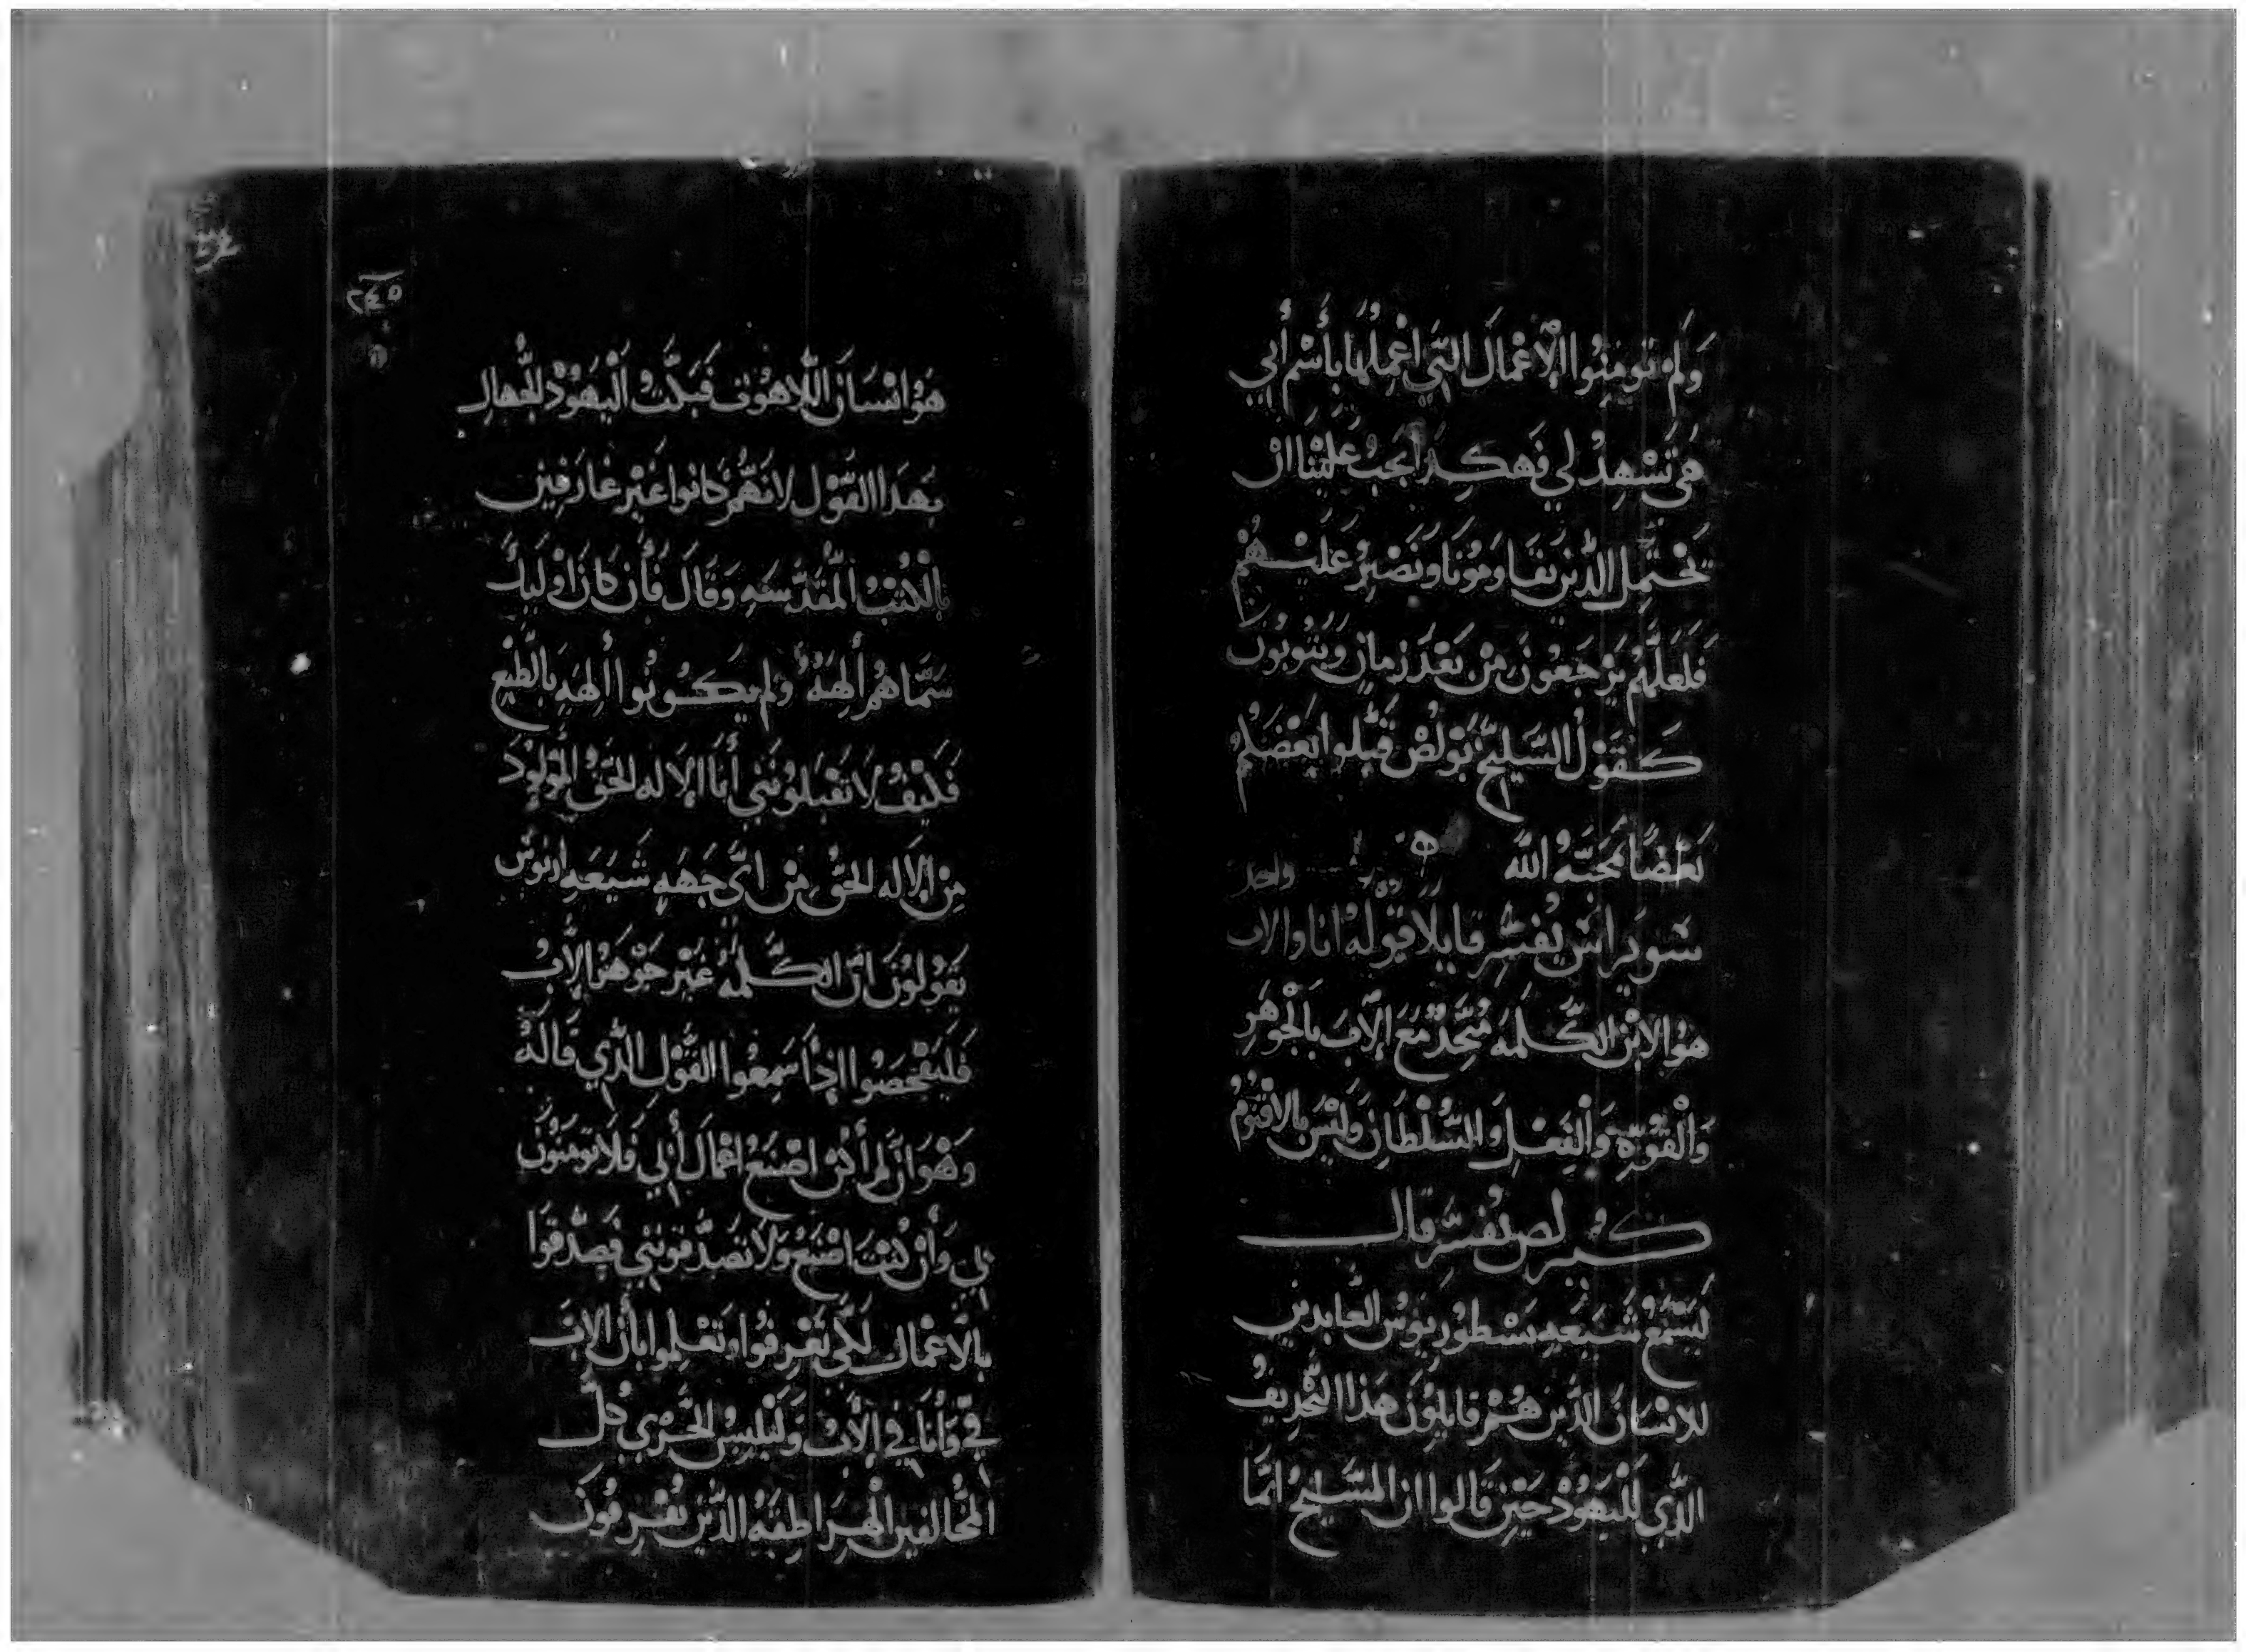 وَلَمْ تومِنُوا الْاعْمَالَ التَّي اعْمِلُهَا بأَسْم أبي
هي تَشْهدُ لي فَهكدَا يجَبُ عَليْنَا انْ
نحْتمِل الدَّينَ يقَاومُونَا وَنَصْبرُ عَليْهُمْ
فَلَعَلَّهُم يَرْجَعُونَ مِن بَعْد زمان وَيَتُوبُون
كَقَوْل السَّليحْ بَوْلصْ قَبْلوا بَعْضَكُم
بَعْضًا بمحَبَّةُ اللَّه ه
سَويَرانس يُفسَّر قايلًا قوْلهُ انا والاب واحد
هوُ الابْن الكَّلمَه مُتَّحدْ مَعَ الآبَ بالْجَوهَرِ
وَالْقُوَّةِ وَالفِعْلِ وَالسُّلْطَانِ وَليْسَ بالاقْنُومُ
كيرلص يُفسَّر قال
لِيَسْمَعُ شيعَهِ نسْطُورِيوُسْ العَّابدين
للانْسَانَ الدَّينَ هُمْ قايلِوُنَ هَذا التَّجْديَفُ
الدَّي لليَهُودْ حيْن قَالوا ان المسَّيحُ انَّما
٢٤٥
هَوُ انْسَانَ اللَّاهُوت فَبكَّتُ الْيَهُودْ الجُهال
بهَدا القَوْل لانَّهُمْ كانوا غَيْر عَارفِين
بالكُتبْ المقَدَّسَهِ وَقَالَ فَأن كانَ اوليكَ
سَمَّاهُم أَلِهَةُ ولم يكُونُوا أَلِهَهِ بالطَّبْعِ
فَكيْفُ لا تَقْبَلوُنَني أَنَا الإلاه الحَقّ الموْلوُدَ
مِن الإلاه الحَقّ مِن ايَّ جَهَهِ شيَعَهِ اريوُسْ
يَقُولوُنَ انَّ الكَّلمةُ غَيْر جَوْهَر الأبُ
فَليَفحَصُوا اذا سَمِعُوا القَوْل الدَّي قالهُ
وَهْوَ انْ لمْ أَكنْ اصْنَعُ اعْمَالَ أبي فَلا توُمنوُنَ
بي وَأنْ كنْتُ اصْنَعُ وَلا تصَدَّقونني فَصدَّقُوا
بالاعْمال لكي تَعْرِفُوا وَتَعْلموا بأن الابَ
فيَّ وَأَنَا في الأبُ وَليَلبسُ الخَّزْي كلَّ
المخَالفين الهَراطِقَه الدَّينَ يُفَرِقوُنَ